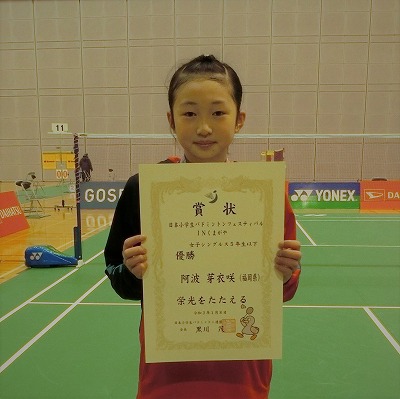 11
GOSE
DAIHATSU
YONEX
DAI
賞状
日本小学生バドミントンフェスティバル
INくまがや
女子シングルス5年生以下
優勝
阿波 芽衣咲(福岡県)
栄光をたたえる